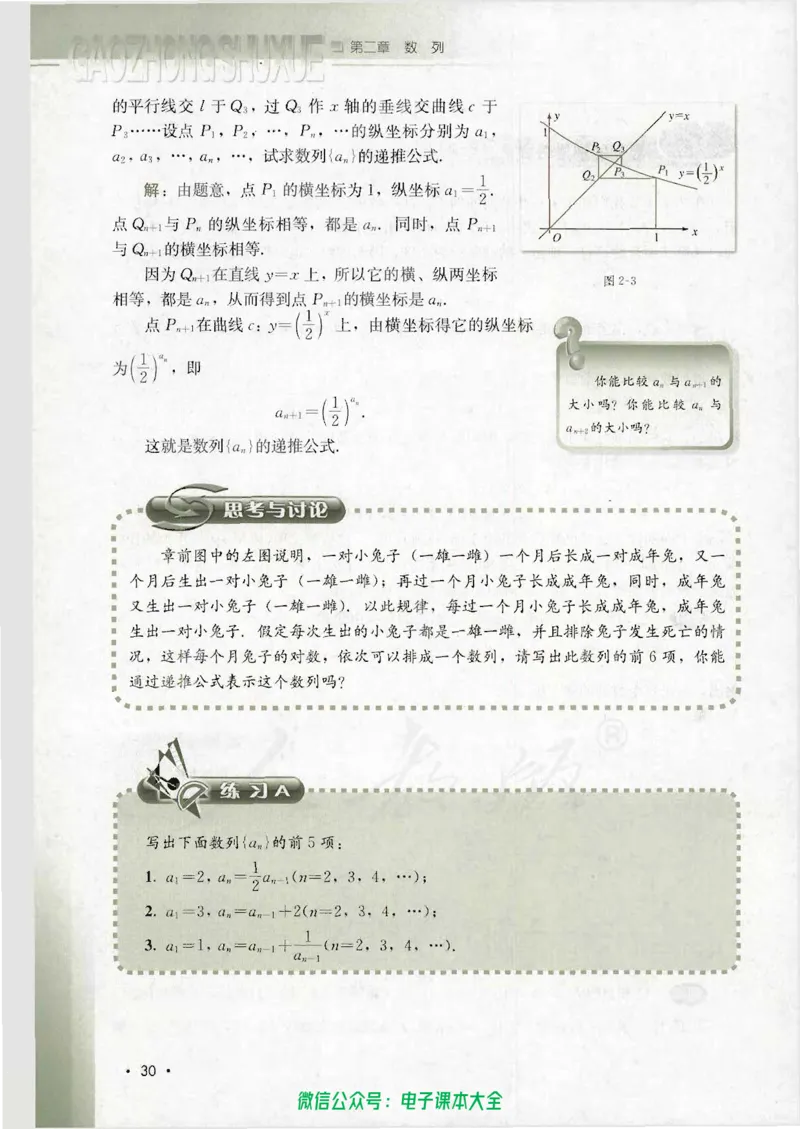 GAOZHONGSHUXUE 第二章 数 列
的平行线交 l 于 Q₃，过 Q₃ 作 x 轴的垂线交曲线 c 于
P₃……设点 P₁，P₂，…，Pₙ，…的纵坐标分别为 a₁，
a₂，a₃，…，aₙ，…，试求数列{aₙ}的递推公式.
解：由题意，点 P₁ 的横坐标为 1，纵坐标 a₁=1/2.
点 Qₙ₊₁与 Pₙ 的纵坐标相等，都是 aₙ. 同时，点 Pₙ₊₁
与 Qₙ₊₁的横坐标相等.
因为 Qₙ₊₁在直线 y=x 上，所以它的横、纵两坐标
相等，都是 aₙ，从而得到点 Pₙ₊₁的横坐标是 aₙ.
点 Pₙ₊₁在曲线 c：y=(1/2)^x 上，由横坐标得它的纵坐标
为(1/2)^aₙ，即
aₙ₊₁=(1/2)^aₙ.
这就是数列{aₙ}的递推公式.
y
y=x
1
P₂ Q₃
Q₂ P₃ P₁ y=(1/2)^x
O 1 x
图 2-3
?
你能比较 aₙ 与 aₙ₊₁ 的
大小吗？你能比较 aₙ 与
aₙ₊₂的大小吗？
思考与讨论
章前图中的左图说明，一对小兔子（一雄一雌）一个月后长成一对成年兔，又一
个月后生出一对小兔子（一雄一雌）；再过一个月小兔子长成成年兔，同时，成年兔
又生出一对小兔子（一雄一雌）. 以此规律，每过一个月小兔子长成成年兔，成年兔
生出一对小兔子. 假定每次生出的小兔子都是一雄一雌，并且排除兔子发生死亡的情
况，这样每个月兔子的对数，依次可以排成一个数列，请写出此数列的前 6 项，你能
通过递推公式表示这个数列吗？
练习A
写出下面数列{aₙ}的前 5 项：
1. a₁=2，aₙ=1/2 aₙ₋₁(n=2，3，4，…)；
2. a₁=3，aₙ=aₙ₋₁+2(n=2，3，4，…)；
3. a₁=1，aₙ=aₙ₋₁+1/aₙ₋₁(n=2，3，4，…).
· 30 ·
微信公众号：电子课本大全